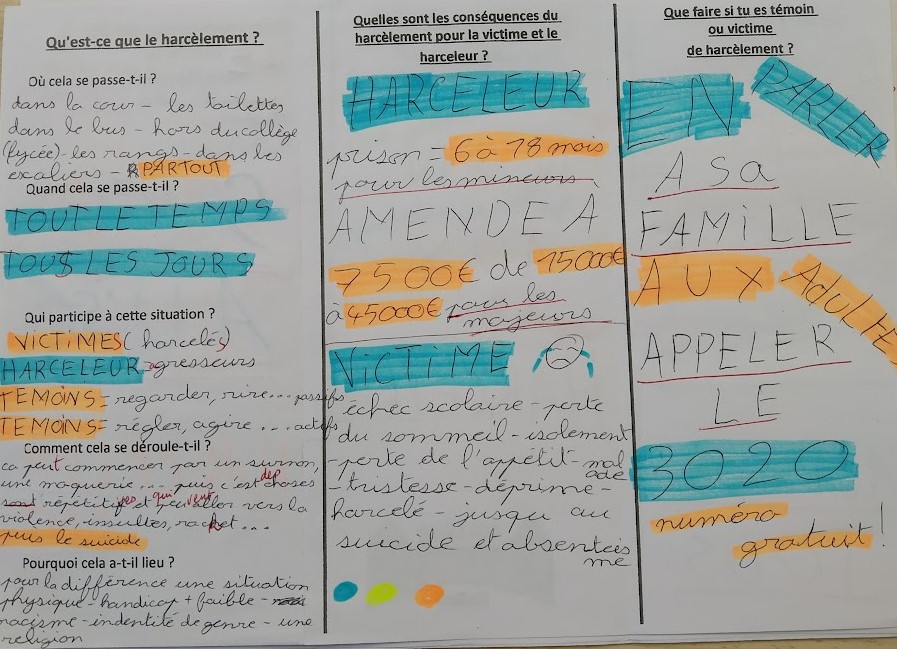 Qu'est-ce que le harcèlement ?
Où cela se passe-t-il ?
dans la cour - les toilettes
dans le bus - hors du collège
(lycée) - les rangs - dans les
escaliers - PARTOUT
Quand cela se passe-t-il ?
TOUT LE TEMPS
TOUS LES JOURS
Qui participe à cette situation ?
VICTIMES (harcelés)
HARCELEUR = agresseurs
TEMOINS = regarder, rire... passifs
TEMOINS = régler, agire ... actifs
Comment cela se déroule-t-il ?
ca peut commencer par un surnom,
une moquerie... puis c'est des choses
répétitives et qui peut aller vers la
violence, insultes, racket...
puis le suicide
Pourquoi cela a-t-il lieu ?
pour la différence une situation
physique - handicap + faible -
racisme - indentité de genre - une
religion
Quelles sont les conséquences du
harcèlement pour la victime et le
harceleur ?
HARCELEUR
prison = 6 à 18 mois
pour les mineurs
AMENDE A
7500€ de 15000€
à 45000€ pour les
majeurs
VICTIME
échec scolaire - perte
du sommeil - isolement
- perte de l'appétit - mal
adie
- tristesse - déprime -
harcelé - jusqu au
suicide et absenteis
me
Que faire si tu es témoin
ou victime
de harcèlement ?
EN PARLER
A SA
FAMILLE
AUX ADULTE
APPELER
LE
3020
numéro
gratuit !